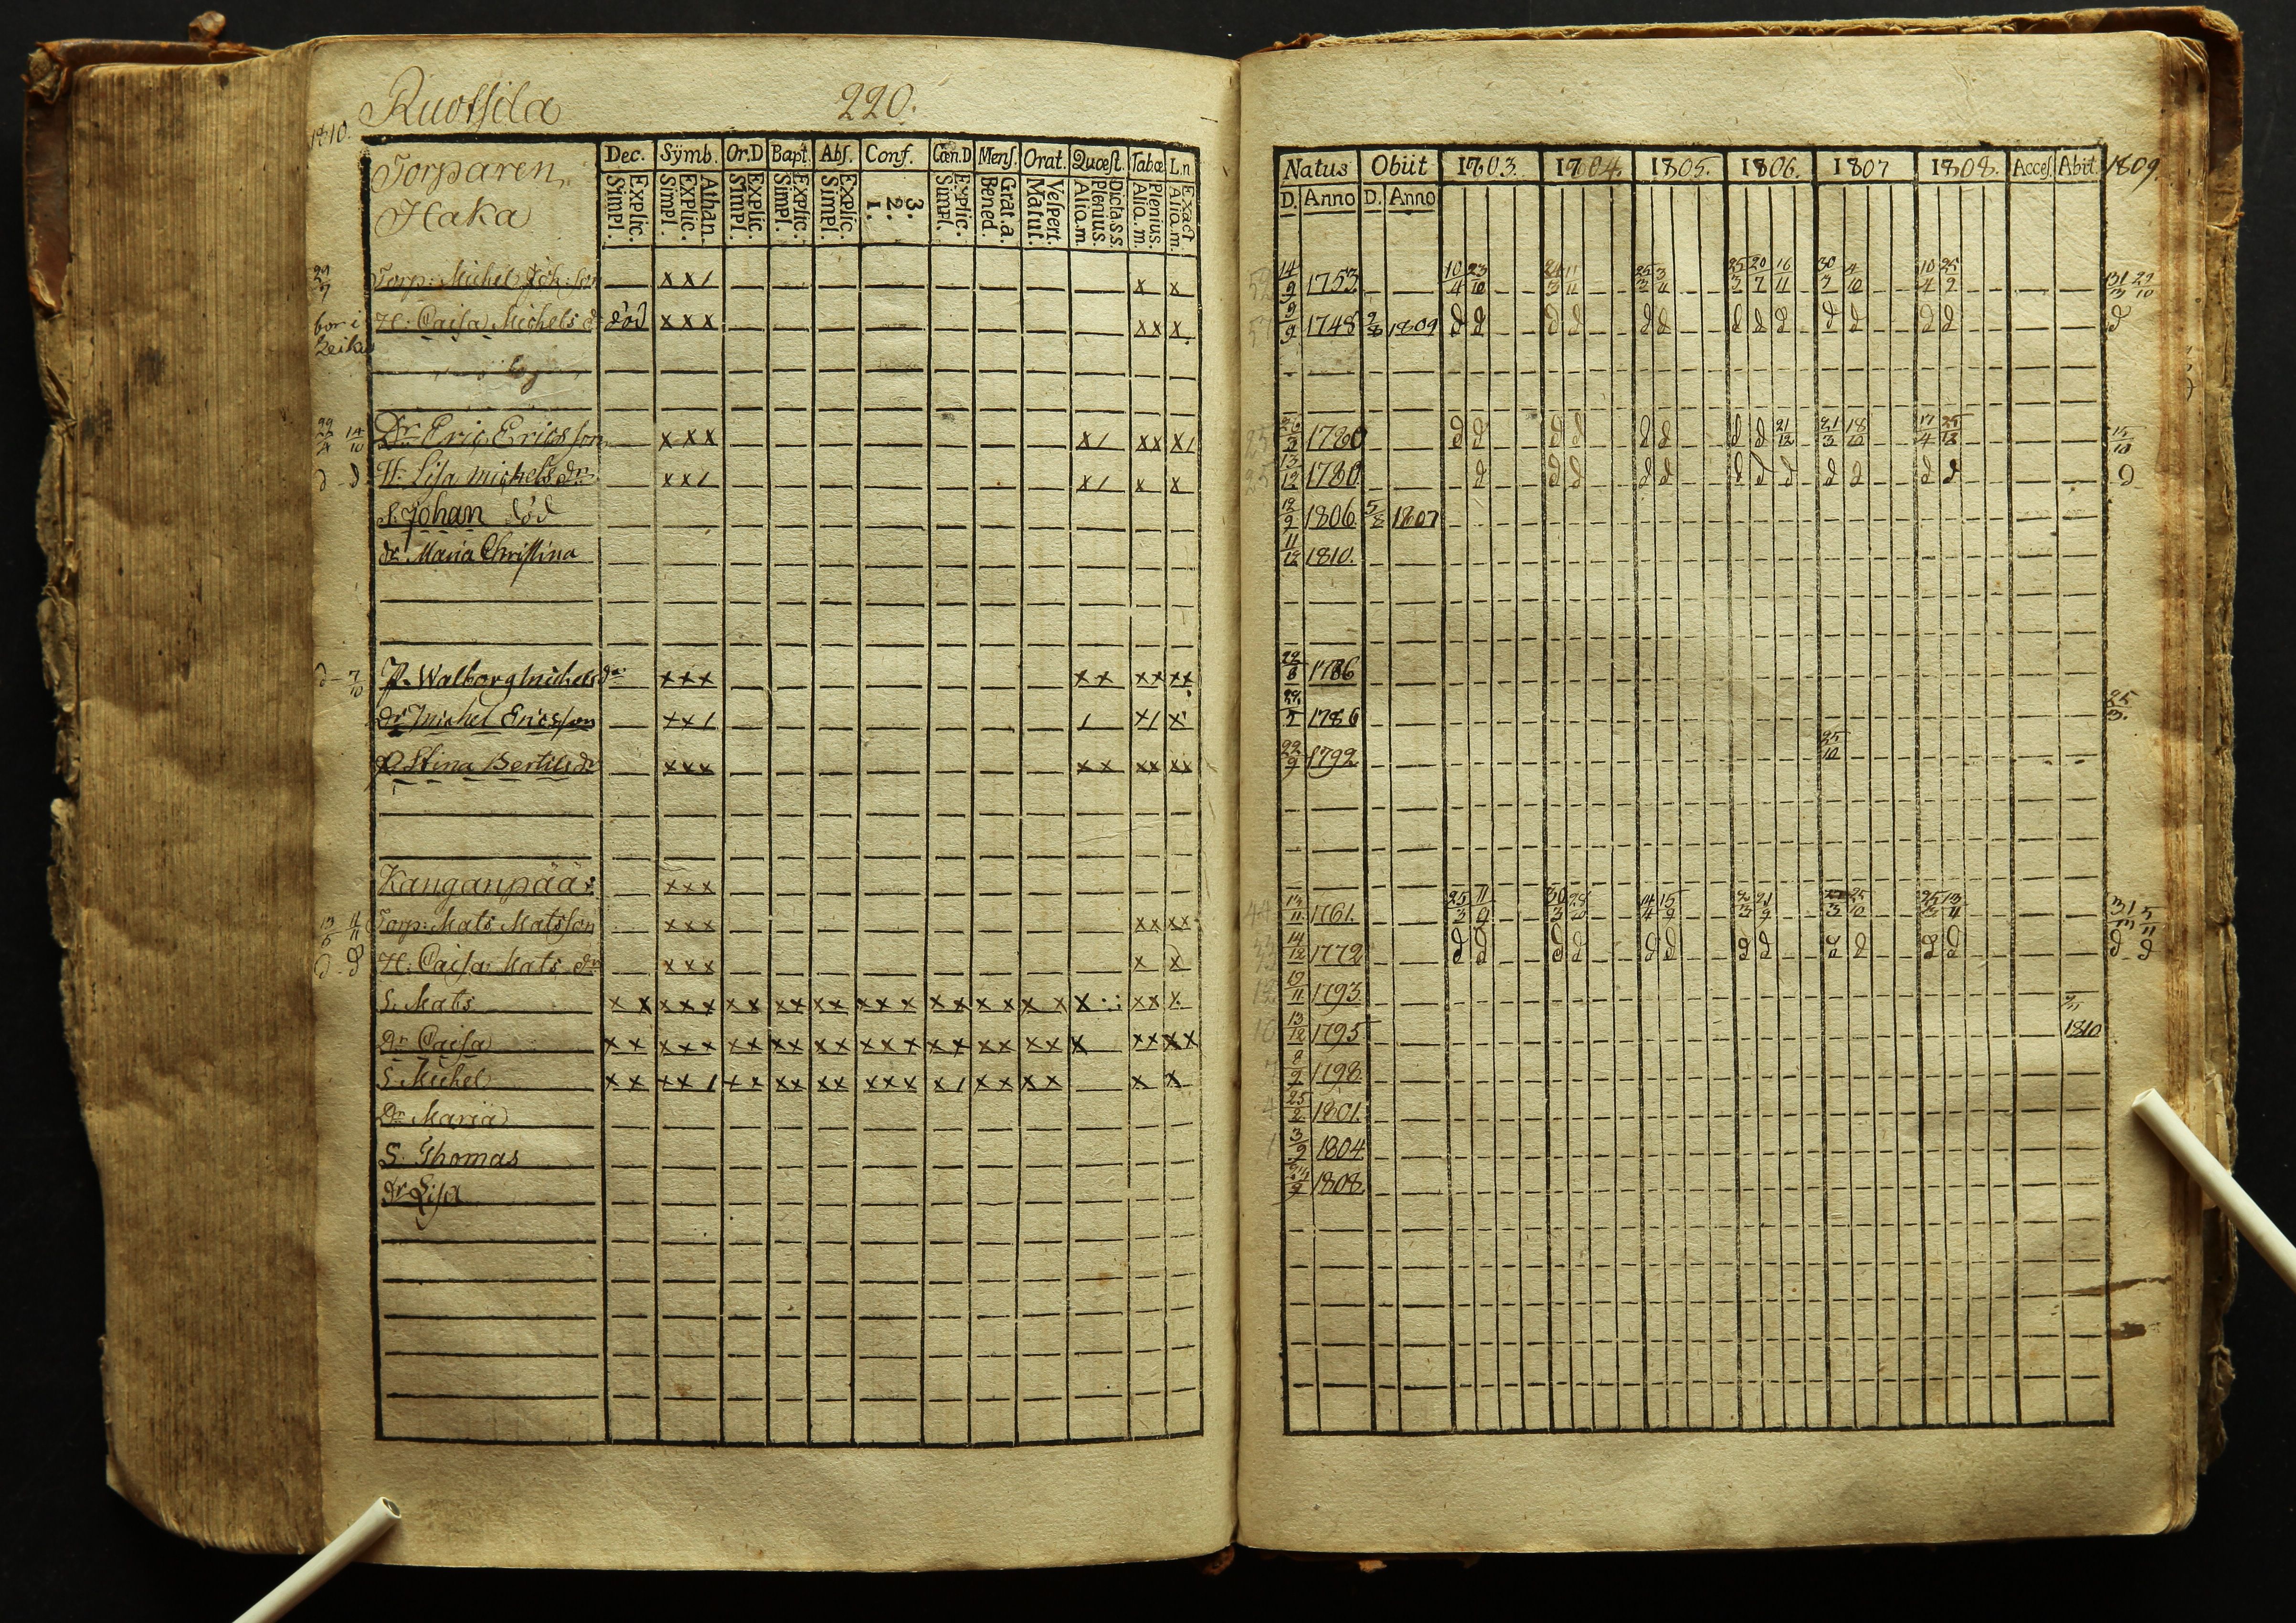 Ruotsila 220.
1810.
Torparen Haka
Dec. Sÿmb. Or.D Bapt. Abs. Conf. Cœn.D Mens. Orat. Quœst. Tabœ L.n
Explic. Simpl. Athan. Explic. Simpl. Explic. Simpl. Explic. Simpl. Explic. Simpl. 3. 2. 1. Explic. Simpl. Grat.a. Bened. Vespert. Matut. Dicta.s.s. Plenius. Alio.m. Plenius. Alio.m. Exact Alio.m.
Natus Obiit 1803. 1804. 1805. 1806. 1807 1808. Acces. Abit. 1809.
D. Anno D. Anno
29/7 Torp: Michel x x / x x 14/9 1753 10/4 23/10 11/11 25/3 3/11 25/3 20/7 16/11 30/3 4/10 10/4 25/9 31/3 22/10
bor i H: Caisa Michels d död x x x x x x 9/9 1748 2/8 1809 d d d d d d d d d d d d d d
Dr Eric Ericsson x x x x / x x x / 1780 d d d d d d d d 21/12 21/3 18/10 17/4 15/10
d - d H: Lisa Michels dr x x / x / x x 13/12 1780 d d d d d d d d d d d d d
S. Johan död 12/9 1806 5/8 1807
dr Maria Christina 11/12 1810.
d - 7/10 P. Walborg Michels dr x x x x x x x x x 22/8 1786
Dr Michel Ericsson x x / / x / x 1786 25/3
P. Stina Bertils dr x x x x x x x x x 22/9 1792 25/10
Kanganpää: x x x
13/5 11/11 Torp: Mats Matsson x x x x x x x 13/11 1761. 25/3 11/9 30/3 14/4 15/9 21/9 25/10 13/11 31/3 5/11
d - d H. Caisa Mats dr x x x x x 14/12 1772 d d d d d d d d d d d d d d
S. Mats x x x x x x x x x x x x x x x x x x x x x x x x x 19/11 1793.
Dr Caisa x x x x x x x x x x x x x x x x x x x x x x x x x 13/12 1795 1810
S. Michel x x x x / x x x x x x x x x x / x x x x x x 8/9 1798
Dr Maria 25/2 1801.
S. Thomas 3/9 1804
dr Lisa 1808